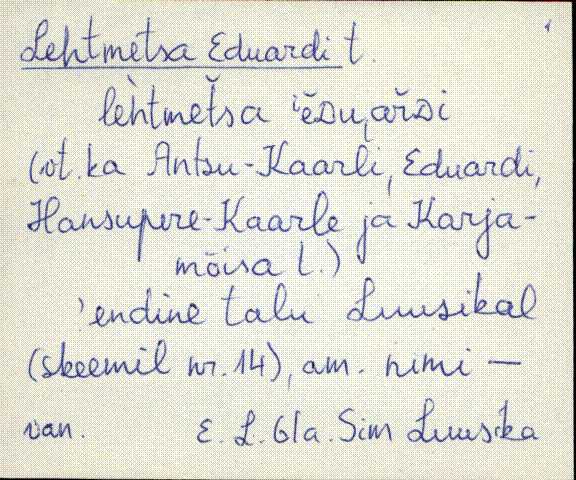 Lehtmetsa Eduardi t.
lèhtmeťsa ˈèᴅuařᴅi
(vt. ka Antsu-Kaarli, Eduardi,
Hansupere-Kaarle ja Karja-
mõisa t.)
'endine talu Luusikal
(skeemil nr. 14), am. nimi —
van. E. L. 61a. Sim Luusika